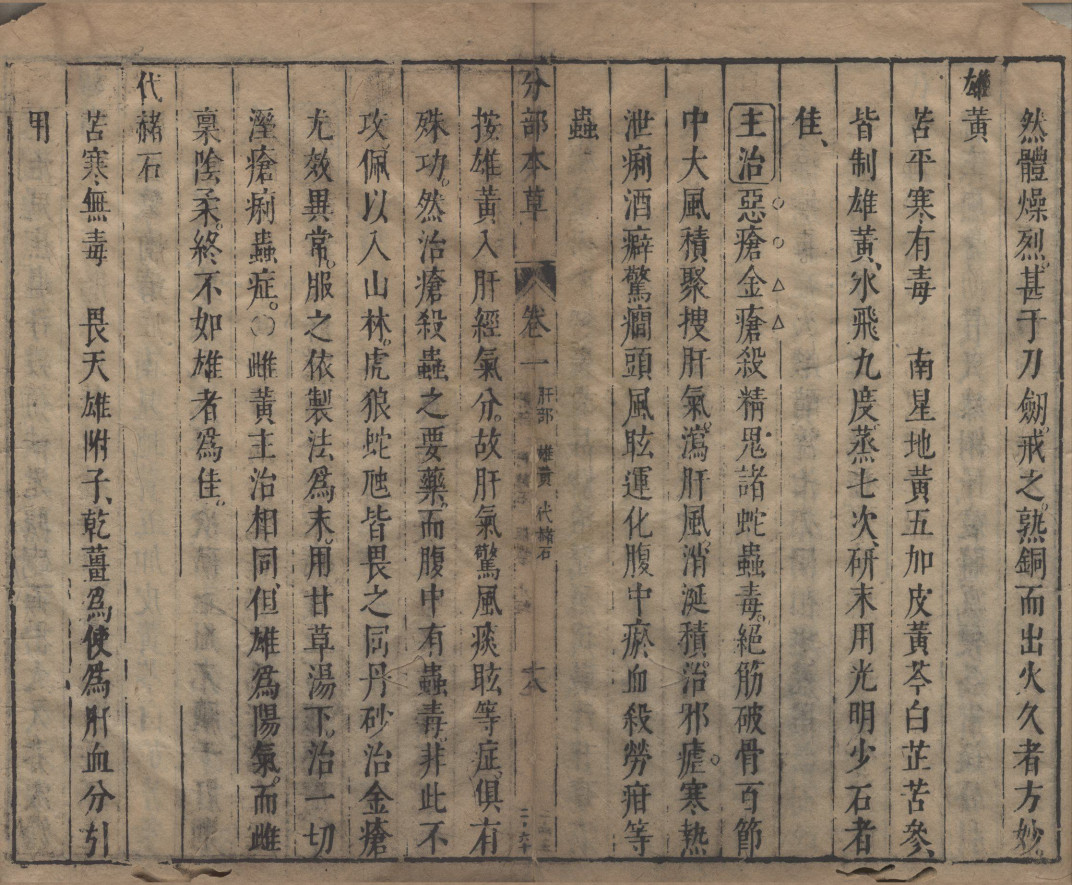 然體燥烈。甚于刀劒。戒之。熟銅而出火久者方妙。
雄黃
苦平寒有毒　南星地黃五加皮黃芩白芷苦參、
皆制雄黃、水飛九度蒸七次、研末用光明少石者
佳、
主治惡瘡金瘡殺精鬼諸蛇蟲毒。絕筋破骨百節
中大風積聚搜肝氣。瀉肝風。消涎積。治邪瘧。寒熱
泄痢酒癖驚癇頭風眩運化腹中瘀血殺勞疳等
蟲
按雄黃入肝經氣分。故肝氣驚風痰眩等症。俱有
殊功。然治瘡殺蟲之要藥。而腹中有蟲毒。非此不
攻。佩以入山林。虎狼蛇虺皆畏之。同丹砂治金瘡
尤效異常。服之依製法為末。用甘草湯下。治一切
溼瘡痢蟲症。〇雌黃主治相同。但雄為陽氣。而雌
稟陰柔。終不如雄者為佳。
代赭石
苦寒無毒　畏天雄附子、乾薑為使為肝血分引
用
分部本草　卷一　肝部　雄黃　代赭石　十八